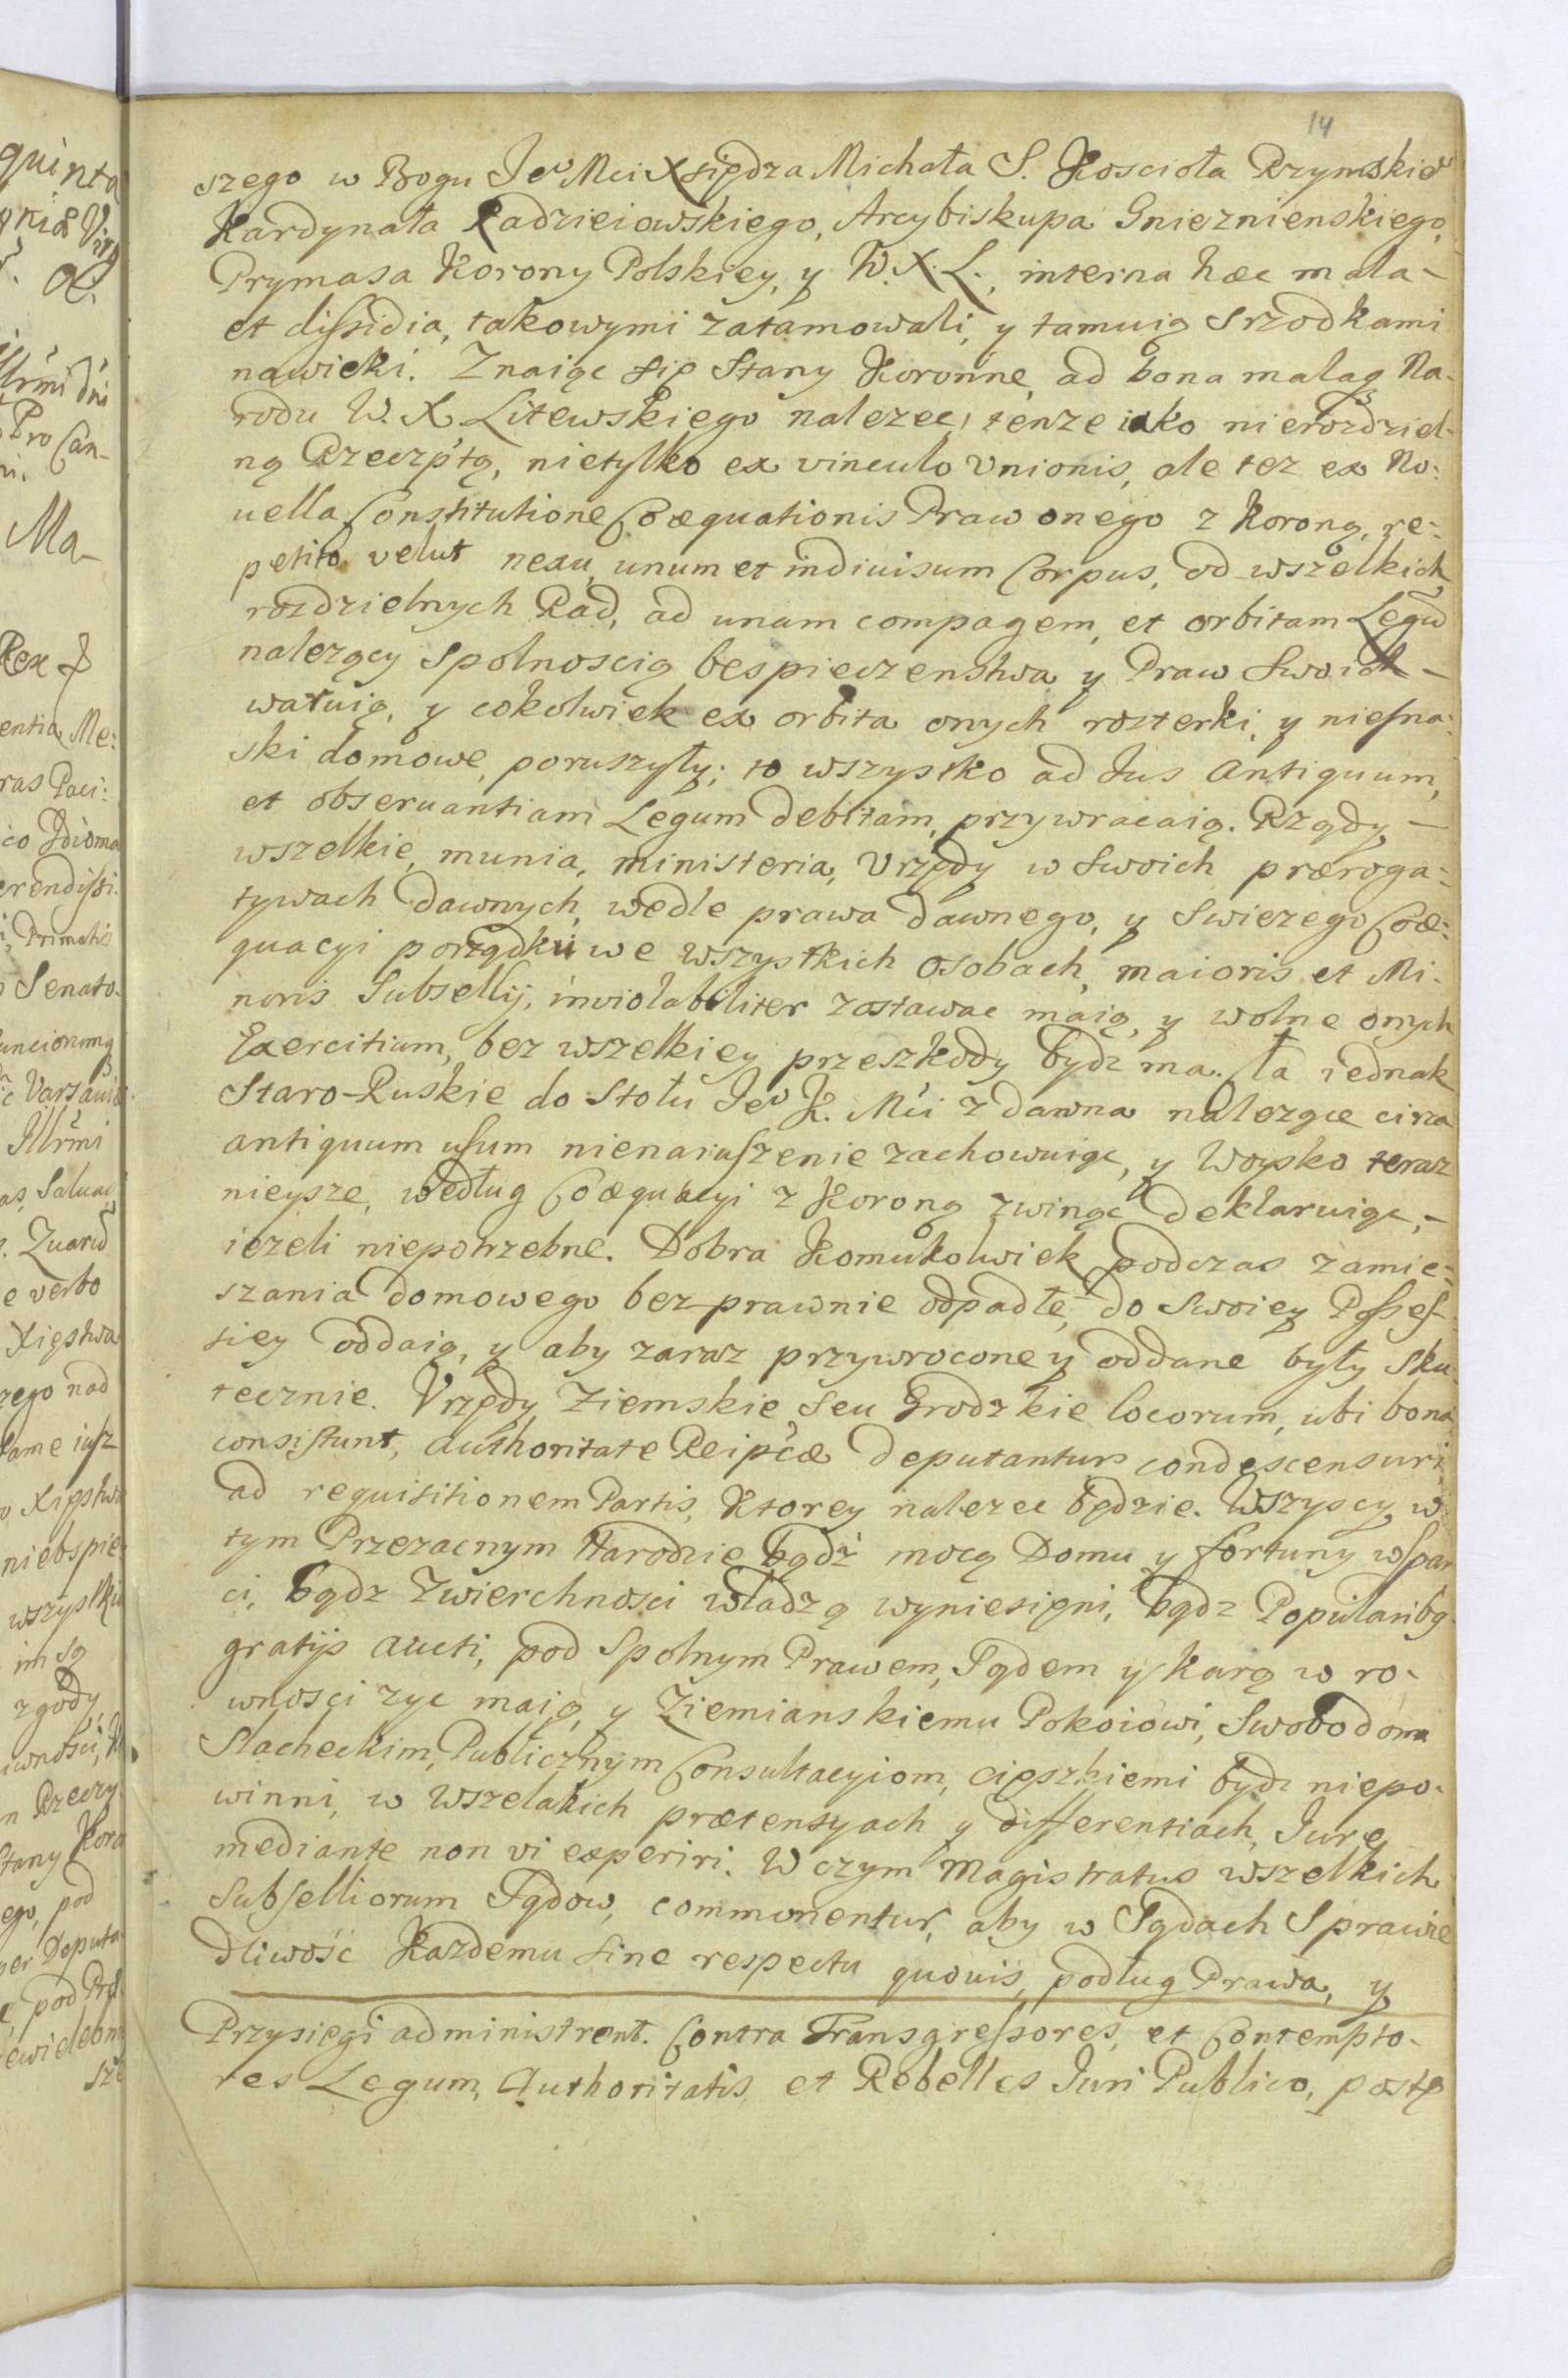 14
szego w Bogu Jeo Mci Xsiędza Michała S. Koscioła Rzymskieo
Kardynała Radzieiowskiego, Arcybiskupa Gnieznienskiego,
Prymasa Korony Polskiey, y W. X. L., interna hæc mala-
et dissidia, takowymi zatamowali, y tamuią srzodkami
nawieki. Znaiąc się Stany Koronne, ad bona malaq Na-
rodu W. X. Litewskiego nalezec, tenze iako nierozdziel-
ną Rzeczp'tą, nietylko ex vinculo Vnionis, ale tez ex No:
uella Constitutione Coæquationis Praw onego z Koroną, re:
petito velut nexu, unum et indiuisum Corpus, od wszelkich
rozdzielnych Rad, ad unam compagem, et orbitam Legū
nalezący spolnoscią bespieczenstwa y Praw Swoich-
waruią, y cokolwiek ex orbita onych rosterki, y niesna:
ski domowe, poruszyły; to wszystko ad Jus Antiquum,
et obseruantiam Legum debitam, przywracaią. Rządy-
wszelkie, munia, ministeria, Vrzędy w Swoich præroga:
tywach dawnych, wedle prawa dawnego, y swiezego Coæ:
quacyi porządku we wszystkich osobach, maioris et Mi-
noris Subsellij, inviolabiliter zostawac maią, y wolne onych
Exercitium, bez wszelkiey przeszkody bydz ma. Ła iednak
Staro-Ruskie do Stołu Jeo K. Mci z dawna nalezące circa
antiquum usum nienaruszenie zachowuiąc, y Woysko teraz
nieysze, według Coæquacyi z Koroną zwinąc deklaruiąc,-
iezeli niepotrzebne. Dobra Komukolwiek podczas zamie:
szania domowego bez prawnie odpadłe, do swoiey Posses-
siey oddaią, y aby zaraz przywrocone y oddane były sku
tecznie. Vrzędy Ziemskie, seu Grodzkie locorum, ubi bona
consistunt, authoritate Reip'cæ deputantur condescensuri
ad requisitionem Partis, Ktorey nalezec będzie. Wszyscy w
tym Przezacnym Narodzie bądz mocą Domu y fortuny wspar
ci, bądz Zwierchnosci władzą wyniesięni, bądz Popularibq
gratijs aucti, pod Spolnym Prawem, Sądem y Karą w ro-
wnosci zyc maią, y Ziemianskiemu Pokoiowi, Swobodom
Slacheckim, Publicznym Consultacyiom, cięszkiemi bydz niepo-
winni, w wszelakich prætensyach y differentiach, Jure
mediante non vi experiri. W czym Magistratus wszelkich
Subselliorum Sądow, commonentur, aby w Sądach Sprawie
dliwość Kazdemu sine respectu quouis, podług Prawa, y
Przysięgi administrent. Contra Transgressores, et Contempto-
res Legum, Authoritatis, et Rebelles Juri Publico, postę